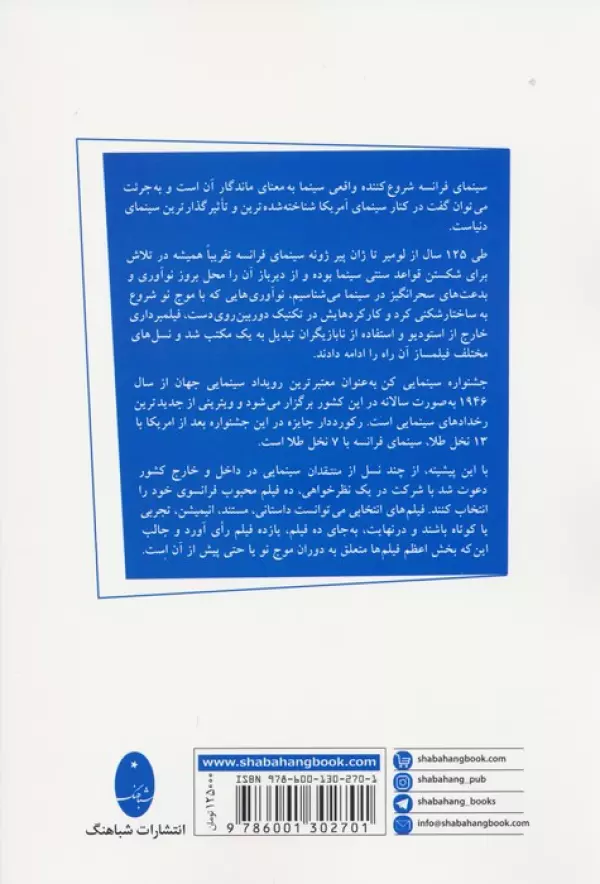 سینمای فرانسه شروع‌کننده واقعی سینما به معنای ماندگار آن است و به‌جرئت
می‌توان گفت در کنار سینمای آمریکا شناخته‌شده‌ترین و تأثیرگذارترین سینمای
دنیاست.
طی ۱۲۵ سال از لومیر تا ژان پیر ژونه سینمای فرانسه تقریباً همیشه در تلاش
برای شکستن قواعد سنتی سینما بوده و از دیرباز آن را محل بروز نوآوری و
بدعت‌های سحرانگیز در سینما می‌شناسیم، نوآوری‌هایی که با موج نو شروع
به ساختارشکنی کرد و کارکردهایش در تکنیک دوربین‌روی‌دست، فیلمبرداری
خارج از استودیو و استفاده از نابازیگران تبدیل به یک مکتب شد و نسل‌های
مختلف فیلمساز آن راه را ادامه دادند.
جشنواره سینمایی کن به‌عنوان معتبرترین رویداد سینمایی جهان از سال
۱۹۴۶ به‌صورت سالانه در این کشور برگزار می‌شود و ویترینی از جدیدترین
رخدادهای سینمایی است. رکورددار جایزه در این جشنواره بعد از امریکا با
۱۳ نخل طلا، سینمای فرانسه با ۷ نخل طلا است.
با این پیشینه، از چند نسل از منتقدان سینمایی در داخل و خارج کشور
دعوت شد با شرکت در یک نظرخواهی، ده فیلم محبوب فرانسوی خود را
انتخاب کنند. فیلم‌های انتخابی می‌توانست داستانی، مستند، انیمیشن، تجربی
یا کوتاه باشند و درنهایت، به‌جای ده فیلم، یازده فیلم رأی آورد و جالب
این‌که بخش اعظم فیلم‌ها متعلق به دوران موج نو یا حتی پیش از آن است.
شباهنگ
انتشارات شباهنگ
۱۲۵۰۰۰ تومان
www.shabahangbook.com
ISBN 978-600-130-270-1
9 786001 302701
shabahangbook.com
shabahang_pub
shabahang_books
info@shabahangbook.com